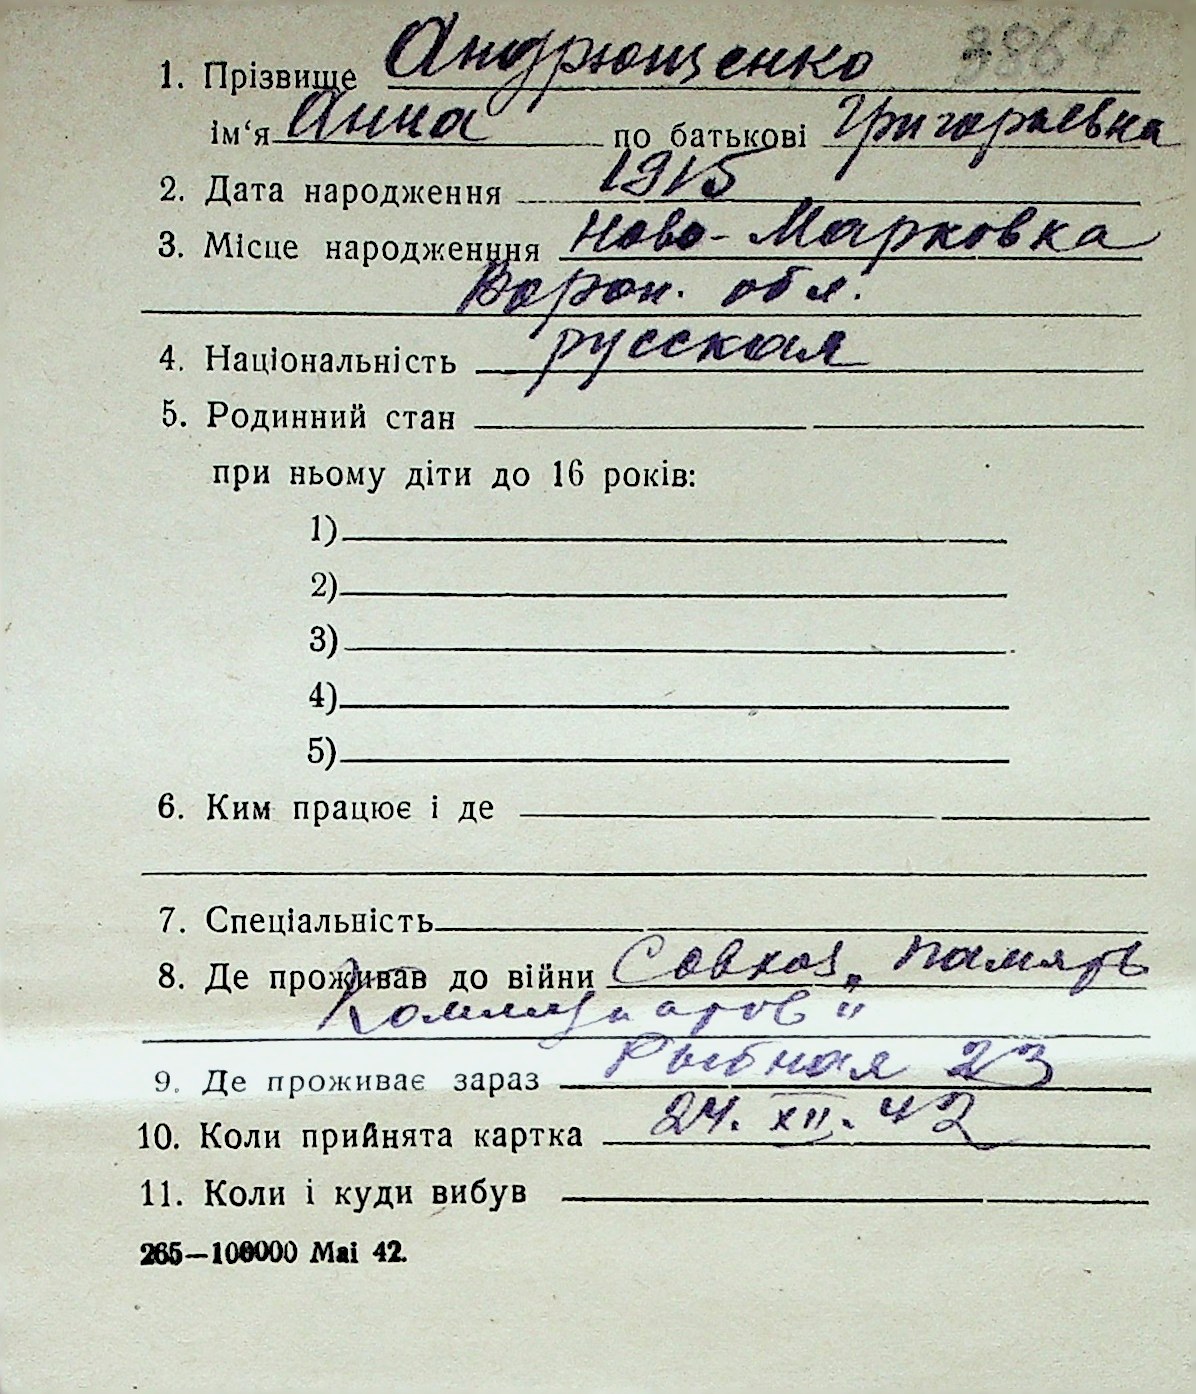 3864
1. Прізвище Андрющенко
ім‘я Анна по батькові Григорьевна
2. Дата народження 1915
3. Місце народженння Ново-Марковка
Ворон. обл.
4. Національність русская
5. Родинний стан
при ньому діти до 16 років:
1)
2)
3)
4)
5)
6. Ким працює і де
7. Спеціальність
8. Де проживав до війни Совхоз „Память
Коммунаров"
9. Де проживає зараз Рыбная 23
10. Коли прийнята картка 24. XII. 42
11. Коли і куди вибув
265—100000 Mai 42.